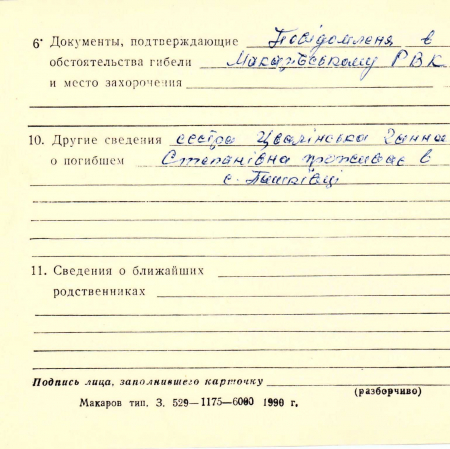 6• Документы, подтверждающие Повідомленя в
обстоятельства гибели Макарівському РВК
и место захоронения
10. Другие сведения сестра Цвалінська Ганна
о погибшем Степанівна проживає в
с. Пашківці
11. Сведения о ближайших
родственниках
Подпись лица, заполнившего карточку
(разборчиво)
Макаров тип. З. 529—1175—6000 1990 г.